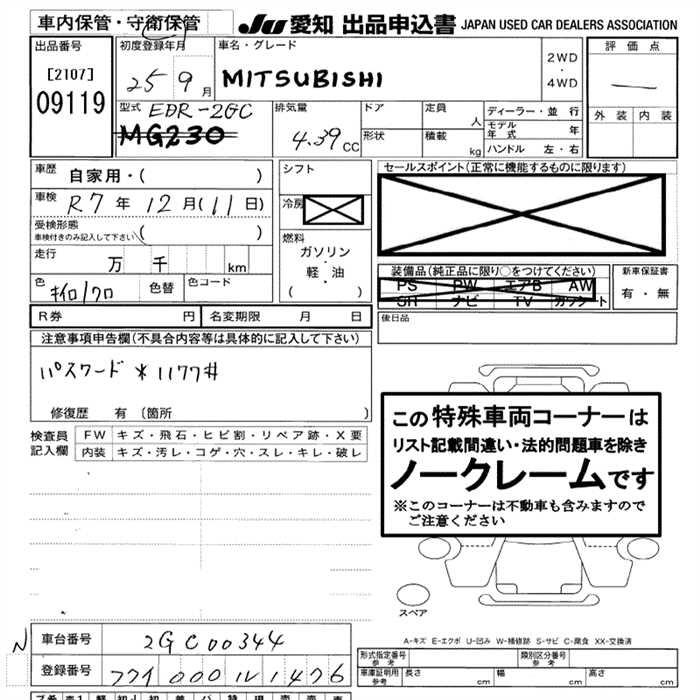 車内保管・守衛保管
JU 愛知 出品申込書 JAPAN USED CAR DEALERS ASSOCIATION
出品番号
[2107]
09119
初度登録年月
25 9月
車名・グレード
MITSUBISHI
2WD
・
4WD
評価点
外装 内装
型式 EDR-2GC
MG230
排気量
4.39cc
ドア
形状
定員 人
積載 kg
ディーラー・並行
モデル年式 年
ハンドル 左・右
車歴 自家用・( )
車検 R7年 12月(11日)
受検形態
車検付きのみ記入して下さい ( )
走行 万 千 km
色 キイロ/クロ 色替 色コード
シフト
冷房
燃料
ガソリン
・
軽・油
( )
セールスポイント(正常に機能するものに限ります)
装備品(純正品に限り○をつけてください)
PS PW エアB AW
SR ナビ TV カワシート
新車保証書
有・無
R券 円 名変期限 月 日
後日品
注意事項申告欄(不具合内容等は具体的に記入して下さい)
パスワード *1177#
修復歴 有 (箇所 )
検査員
記入欄
FW キズ・飛石・ヒビ割・リペア跡・X要
内装 キズ・汚レ・コゲ・穴・スレ・キレ・破レ
この特殊車両コーナーは
リスト記載間違い・法的問題車を除き
ノークレームです
※このコーナーは不動車も含みますので
ご注意ください
スペア
A-キズ E-エクボ U-凹み W-補修跡 S-サビ C-腐食 XX-交換済
N
車台番号 2GC00344
登録番号 1476
形式指定番号
参考
類別区分番号
参考
車庫証明用
参考
長さ cm 幅 cm 高さ cm